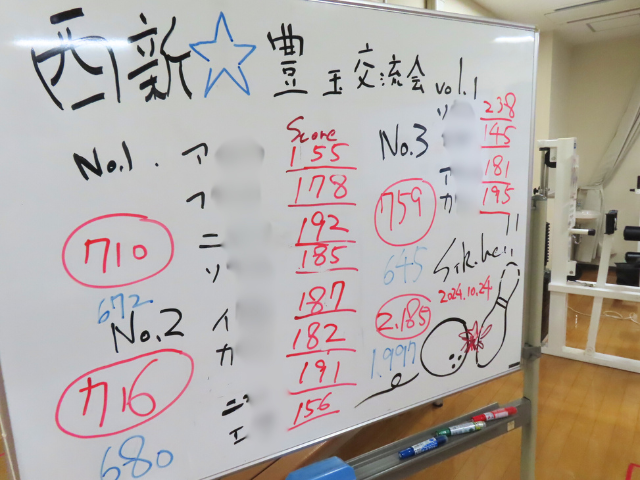 西新☆豊玉交流会 vol.1
No.1.
Score
ア 155
フ 178
ニ 192
ソ 185
710
672
No.2
イ 187
カ 182
191
エ 156
716
680
No.3
ソ 238
145
ア 181
カ 195
759
645
2.185
1.997
2024.10.24